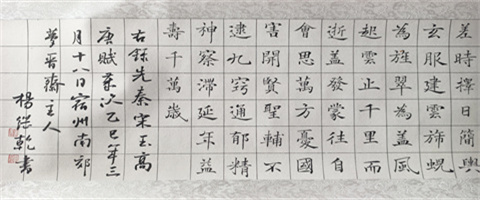 差時擇日簡輿
玄服建雲斾蜺
為旌翠為蓋風
起雲止千里而
逝蓋發蒙往自
會思萬方憂國
害開賢聖輔不
逮九竅通郁精
神察滯延年益
壽千萬歲
右錄先秦宋玉高
唐賦歲次乙巳年三
月十八日宿州南郊
夢晉齋主人
楊繼乾書